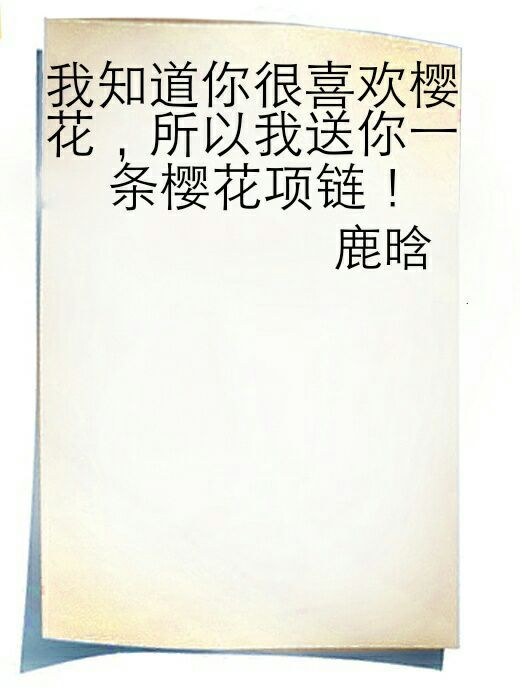 我知道你很喜欢樱
花，所以我送你一
条樱花项链！
鹿晗